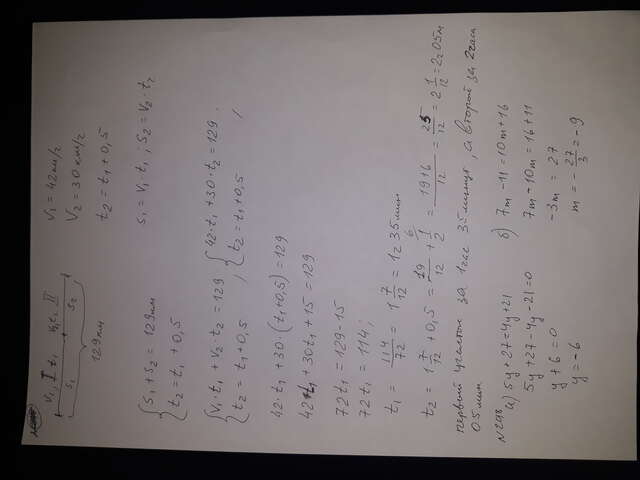 V₁, I t₁ V₂ t₂ II
S₁ S₂
129км
V₁ = 42км/г
V₂ = 30 км/г
t₂ = t₁ + 0,5
S₁ = V₁ · t₁ ; S₂ = V₂ · t₂
{ S₁ + S₂ = 129км
t₂ = t₁ + 0,5
{ V₁ · t₁ + V₂ · t₂ = 129 { 42 · t₁ + 30 · t₂ = 129
t₂ = t₁ + 0,5 , t₂ = t₁ + 0,5 ,
42 · t₁ + 30 · (t₁ + 0,5) = 129
42t₁ + 30t₁ + 15 = 129
72t₁ = 129 - 15
72t₁ = 114;
t₁ = 114/72 = 1 7/12 = 1г 35мин
t₂ = 1 7/12 + 0,5 = 19/12 + 1/2 6/ = 19+6/12 = 25/12 = 2 1/12 = 2г 05м
первый участок за 1час 35 минут, а второй за 2часа
05 мин
N298
а) 5y + 27 = 4y + 21
5y + 27 - 4y - 21 = 0
y + 6 = 0
y = -6
б) 7m - 11 = 10m + 16
7m - 10m = 16 + 11
-3m = 27
m = - 27/3 = -9